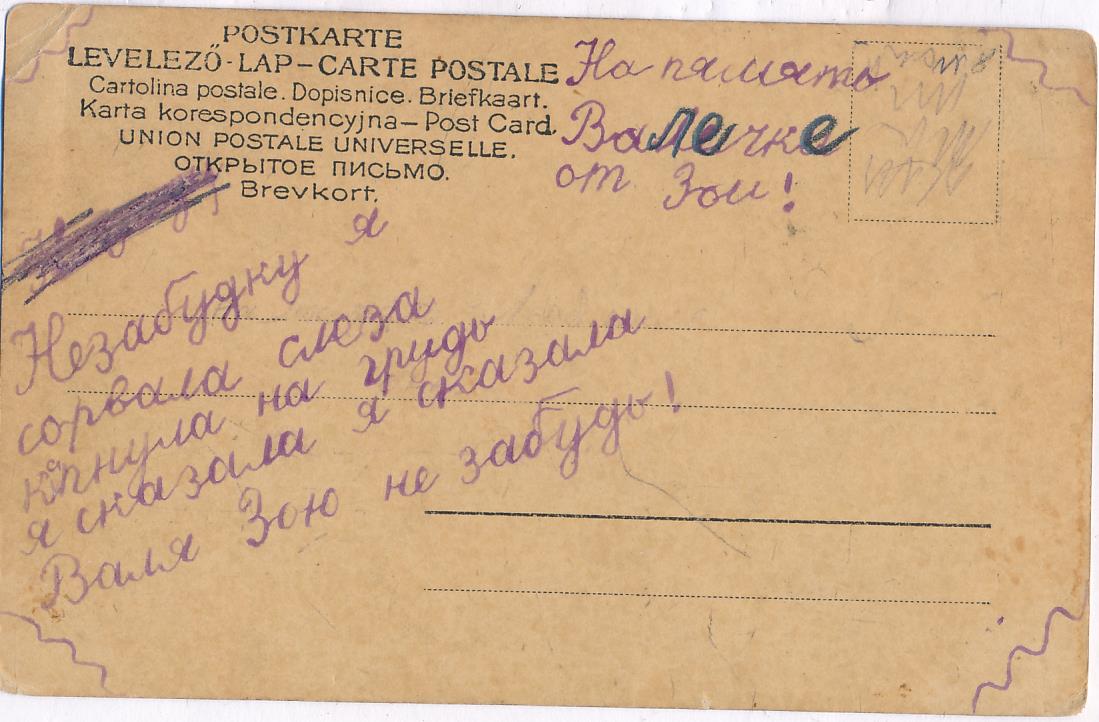 POSTKARTE
LEVELEZŐ-LAP – CARTE POSTALE
Cartolina postale. Dopisnice. Briefkaart.
Karta korespondencyjna – Post Card.
UNION POSTALE UNIVERSELLE.
ОТКРЫТОЕ ПИСЬМО.
Brevkort.
На пямять
Валечке
от Зои!
я
Незабудку я
сорвала слеза
капнула на грудь
я сказала я сказала
Валя Зою не забудь!